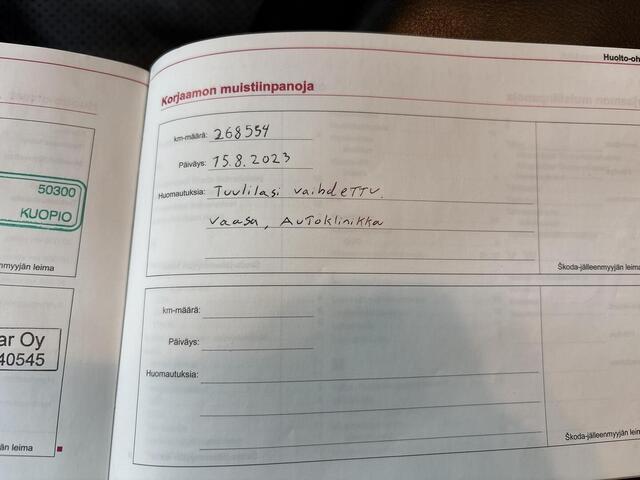 50300
KUOPIO
nmyyjän leima
ar Oy
40545
än leima
Huolto-oh
Korjaamon muistiinpanoja
km-määrä: 268554
Päiväys: 15.8.2023
Huomautuksia: Tuulilasi vaihdettu.
Vaasa, Autoklinikka
Škoda-jälleenmyyjän leima
km-määrä:
Päiväys:
Huomautuksia:
Škoda-jälleenmyyjän leima